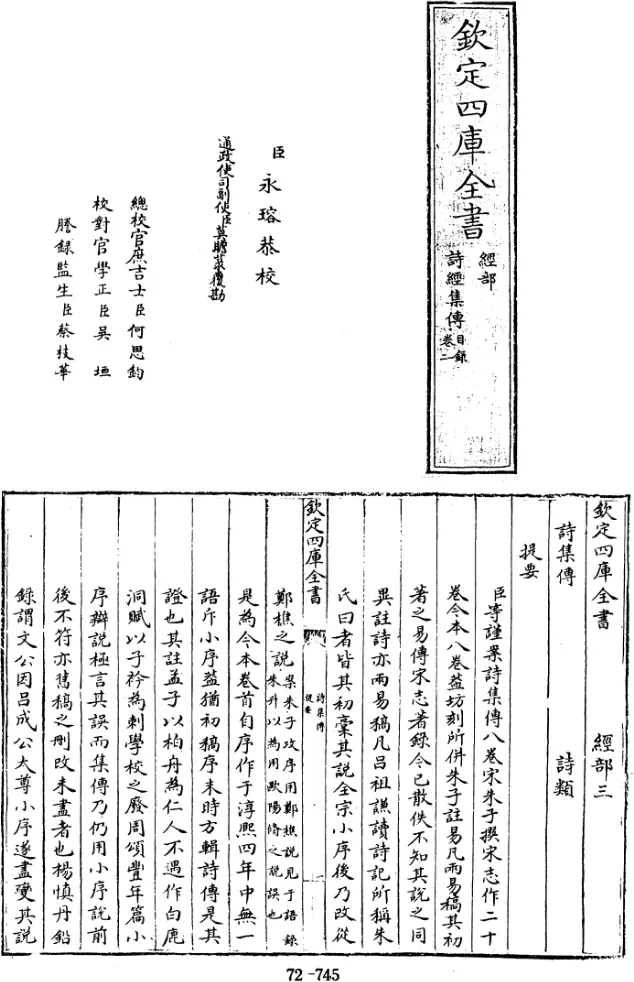 欽定四庫全書
經部
詩經集傳
目錄
卷二
臣永瑢恭校
通政使司副使臣莫瞻菉覆勘
總校官庶吉士臣何思鈞
校對官學正臣吳垣
謄錄監生臣蔡枝華
欽定四庫全書 經部三
詩集傳 詩類
提要
臣等謹案詩集傳八卷宋朱子撰宋志作二十
卷今本八卷蓋坊刻所併朱子註易凡兩易稿其初
著之易傳宋志著錄今已散佚不知其說之同
異註詩亦兩易稿凡呂祖謙讀詩記所稱朱
氏曰者皆其初稾其說全宗小序後乃改從
欽定四庫全書
詩集傳
提要
一
鄭樵之說案朱子攻序用鄭樵說見于語錄
朱升以為用歐陽脩之說誤也
是為今本卷首自序作于淳熙四年中無一
語斥小序蓋猶初稿序末時方輯詩傳是其
證也其註孟子以柏舟為仁人不遇作白鹿
洞賦以子衿為刺學校之廢周頌豐年篇小
序辯說極言其誤而集傳乃仍用小序說前
後不符亦舊稿之刪改未盡者也楊慎丹鉛
錄謂文公因呂成公太尊小序遂盡變其說
72-745